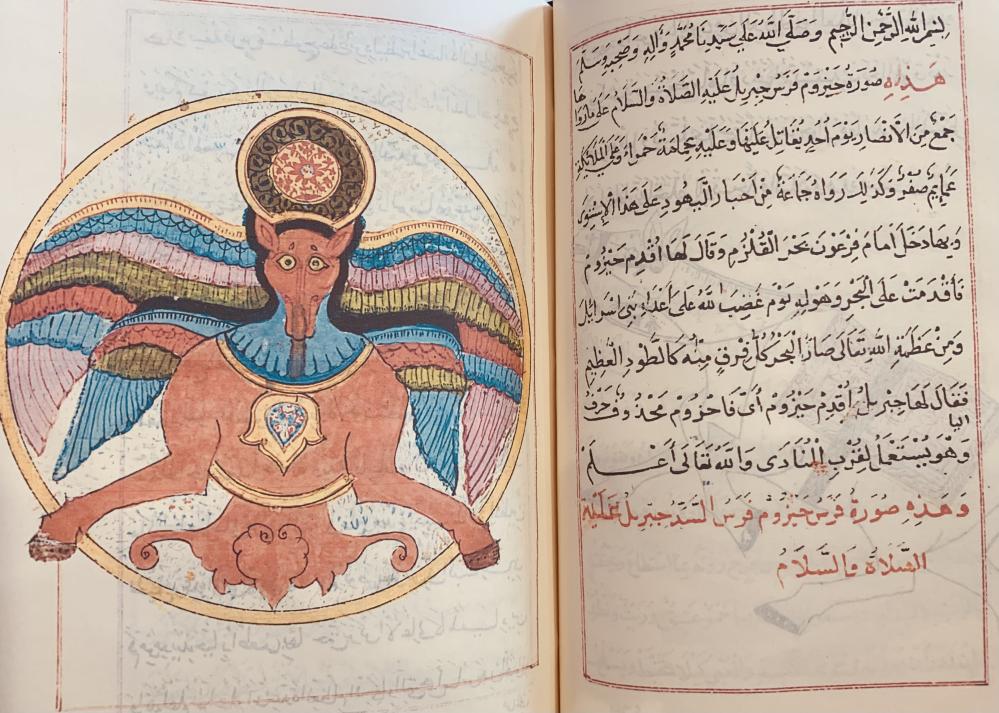 بِسْمِ اللهِ الرَّحْمٰنِ الرَّحِيْمِ وَصَلَّى اللهُ عَلَى سَيِّدِنَا مُحَمَّدٍ وَآلِهِ وَصَحْبِهِ وَسَلَّمَ
هَذِهِ صُورَةُ حَيْزُومْ فَرَسُ جِبْرِيلُ عَلَيْهِ الصَّلَاةُ وَالسَّلَامُ عَلَى مَا رَوَاهَا
جَمْعٌ مِنَ الْأَنْصَارِ يَوْمَ أُحُدٍ يُقَاتِلُ عَلَيْهَا وَعَلَيْهِ عِمَامَةٌ حَمْرَاءُ وَعَلَى الْمَلَائِكَةِ
عَمَايِمٌ صُفْرٌ وَكَذَلِكَ رَوَاهُ جَمَاعَةٌ مِنْ أَحْبَارِ الْيَهُودِ عَلَى هَذَا
وَبِهَا دَخَلَ أَمَامَ فِرْعَوْنَ بَحْرَ الْقُلْزُمِ وَقَالَ لَهَا اُقْدِمْ حَيْزُومْ
فَأَقْدَمَتْ عَلَى الْبَحْرِ وَهَوْلِهِ يَوْمَ غَضِبَ اللهُ عَلَى أَعْدَاءِ بَنِي إِسْرَائِيلَ
وَمِنْ عَظَمَةِ اللهِ تَعَالَى صَارَ الْبَحْرُ كُلُّ فِرْقٍ مِنْهُ كَالطَّوْدِ الْعَظِيمِ
فَقَالَ لَهَا جِبْرِيلُ أُقْدِمْ حَيْزُومْ أَيْ فَاحَيْزُومْ مَحْذُوفْ حَرْفُ
اليا
وَهُوَ يُسْتَعْمَلُ لِقُرْبِ الْمُنَادَى وَاللهُ تَعَالَى أَعْلَمْ
وَهَذِهِ صُورَةُ فَرَسِ حَيْزُومْ فَرَسُ السَّيِّدُ جِبْرِيلُ عَلَيْهِ
الصَّلَاةُ وَالسَّلَامُ